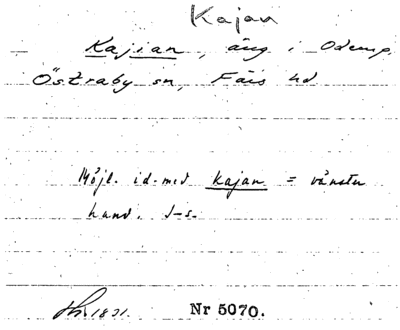 Kajan
Kajian, äng i Odemp.
Östraby sn, Färs hd
Möjl. id. med kajan = vänster
hand. J-s.
1831. Nr 5070.